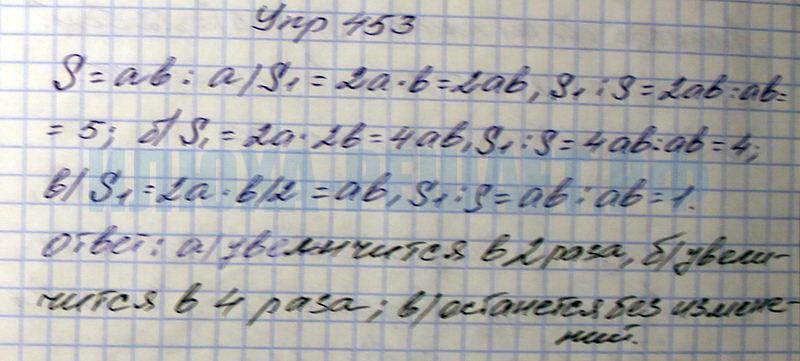 Упр 453
S = ab : а/ S₁ = 2a · b = 2ab, S₁ : S = 2ab : ab =
= 5; б/ S₁ = 2a · 2b = 4ab, S₁ : S = 4ab : ab = 4;
в/ S₁ = 2a · b/2 = ab, S₁ : S = ab : ab = 1.
ответ: а/ увеличится в 2 раза, б/ увели-
чится в 4 раза; в/ останется без измене-
ний.